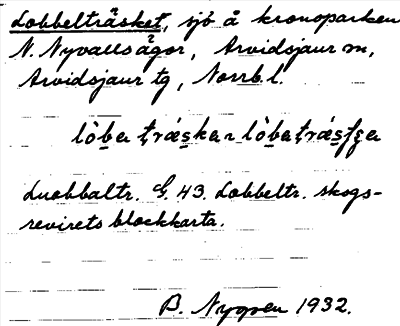 Lobbelträsket, sjö å kronoparken
N. Nyvallsågor, Arvidsjaur m,
Arvidsjaur tg, Norrb. l.
Luobbaltr. G. 43. Lobbeltr. skogs-
revirets blockkarta.
B. Nygren 1932.